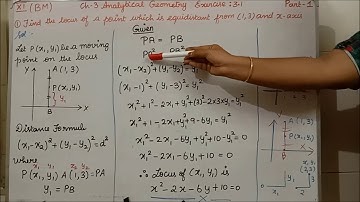 XI (BM) Ch-3 Analytical Geometry Exercise: 3.1 Part-1
① Find the locus of a point which is equidistant from (1,3) and x-axis
Sol:
Let P(x₁,y₁) be a moving
point on the locus
A(1,3)
P(x₁,y₁)
y₁
Distance Formula
(x₁-x₂)²+(y₁-y₂)²=d²
where
x₁ y₁ x₂ y₂
P(x₁,y₁) A(1,3) = PA
y₁ = PB
Given
PA = PB
PA² = PB²
(x₁-x₂)²+(y₁-y₂)²=y₁²
(x₁-1)²+(y₁-3)²=y₁²
x₁²+1-2x₁+y₁²+(3)²-2×3×y₁=y₁²
x₁²+1-2x₁+y₁²+9-6y₁=y₁²
x₁²-2x₁-6y₁+10=0
∴ Locus of (x₁,y₁) is
x²-2x-6y+10=0